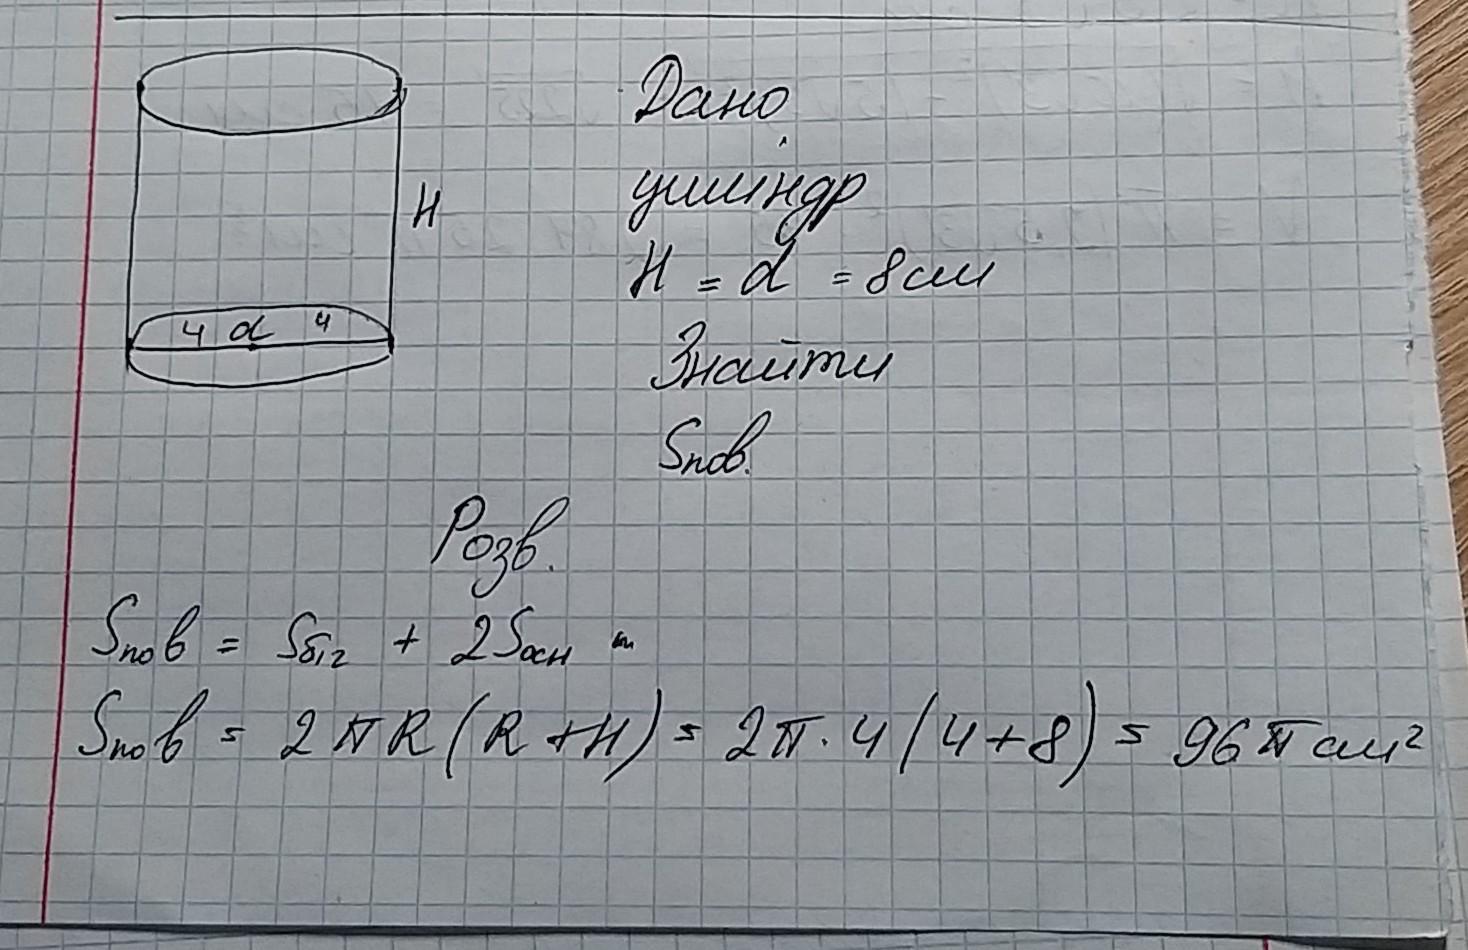 H
4 d 4
Дано
циліндр
H = d = 8см
Знайти
Sпов.
Розв.
Sпов = Sбіг + 2Sосн
Sпов = 2πR(R+H) = 2π·4(4+8) = 96π см²